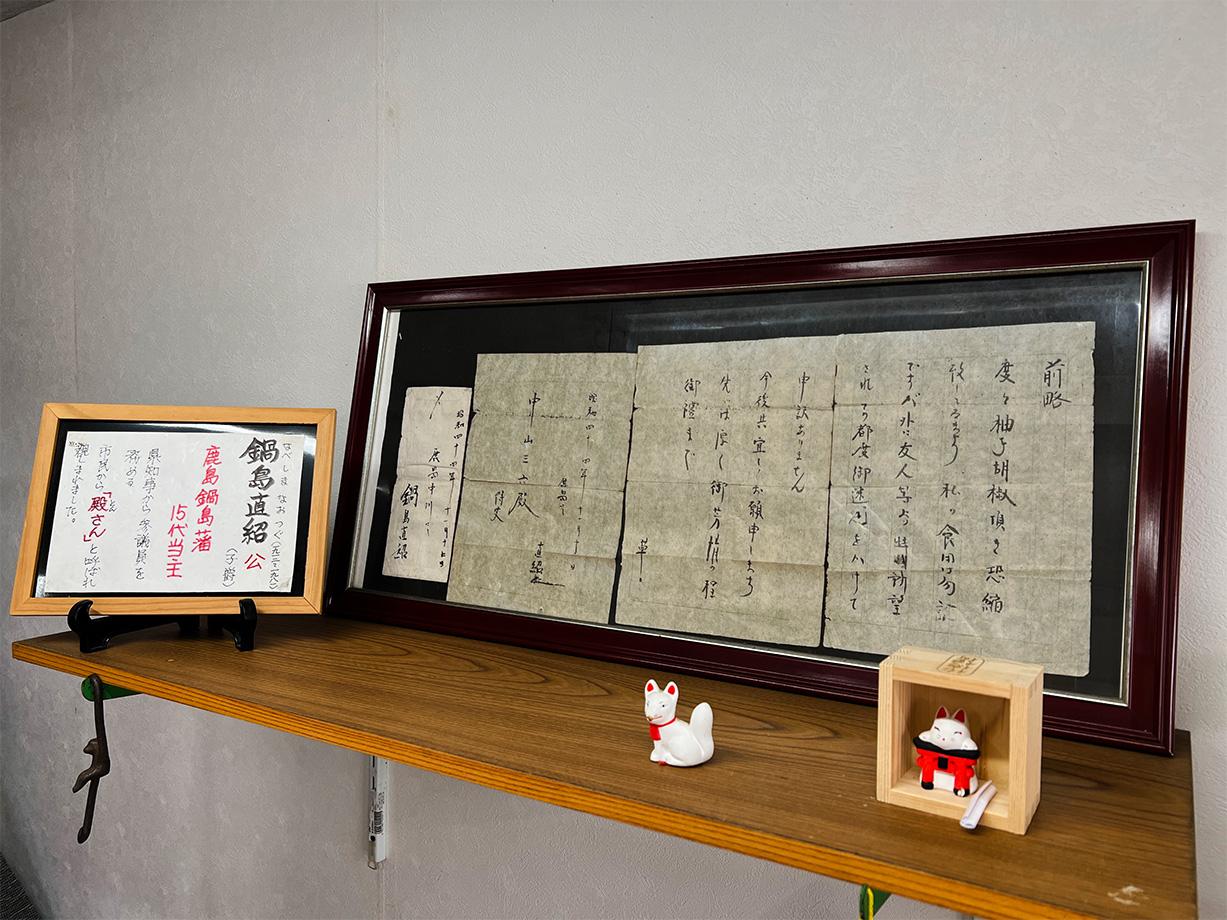 なべしま なお つぐ
鍋島直紹 公
(子爵)
鹿島鍋島藩
15代当主
県知事から 参議員を
務める
市民から「殿さん」と呼ばれ
との
親しまれました。
前略
度々柚子胡椒頂き恐縮
致してゐます 私の食用は勿論
ですが 外に友人等より
されその都度御迷惑をかけて
申訳ありません
今後共宜しくお願申します
先づは厚く御芳情の程
御礼まで
草々
昭和四十四年十一月
鹿島にて
直紹
中山三六殿
侍史
〆
昭和四十四年 十一月十
鹿島中川にて
鍋島直紹